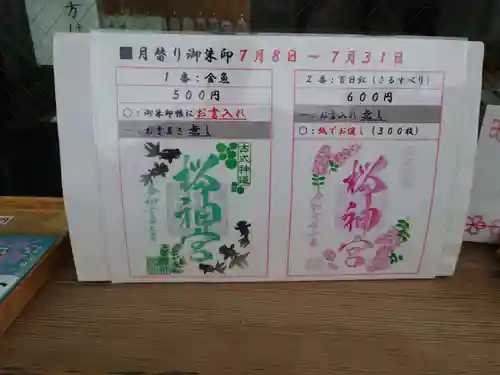 ■月替り御朱印７月８日～７月３１日
１番：金魚
５００円
○：御朱印帳にお書入れ
―：お書置き無し
古式神道
桜神宮
２番：百日紅（さるすべり）
６００円
―：お書入れ無し
○：紙でお渡し（３００枚）
桜神宮